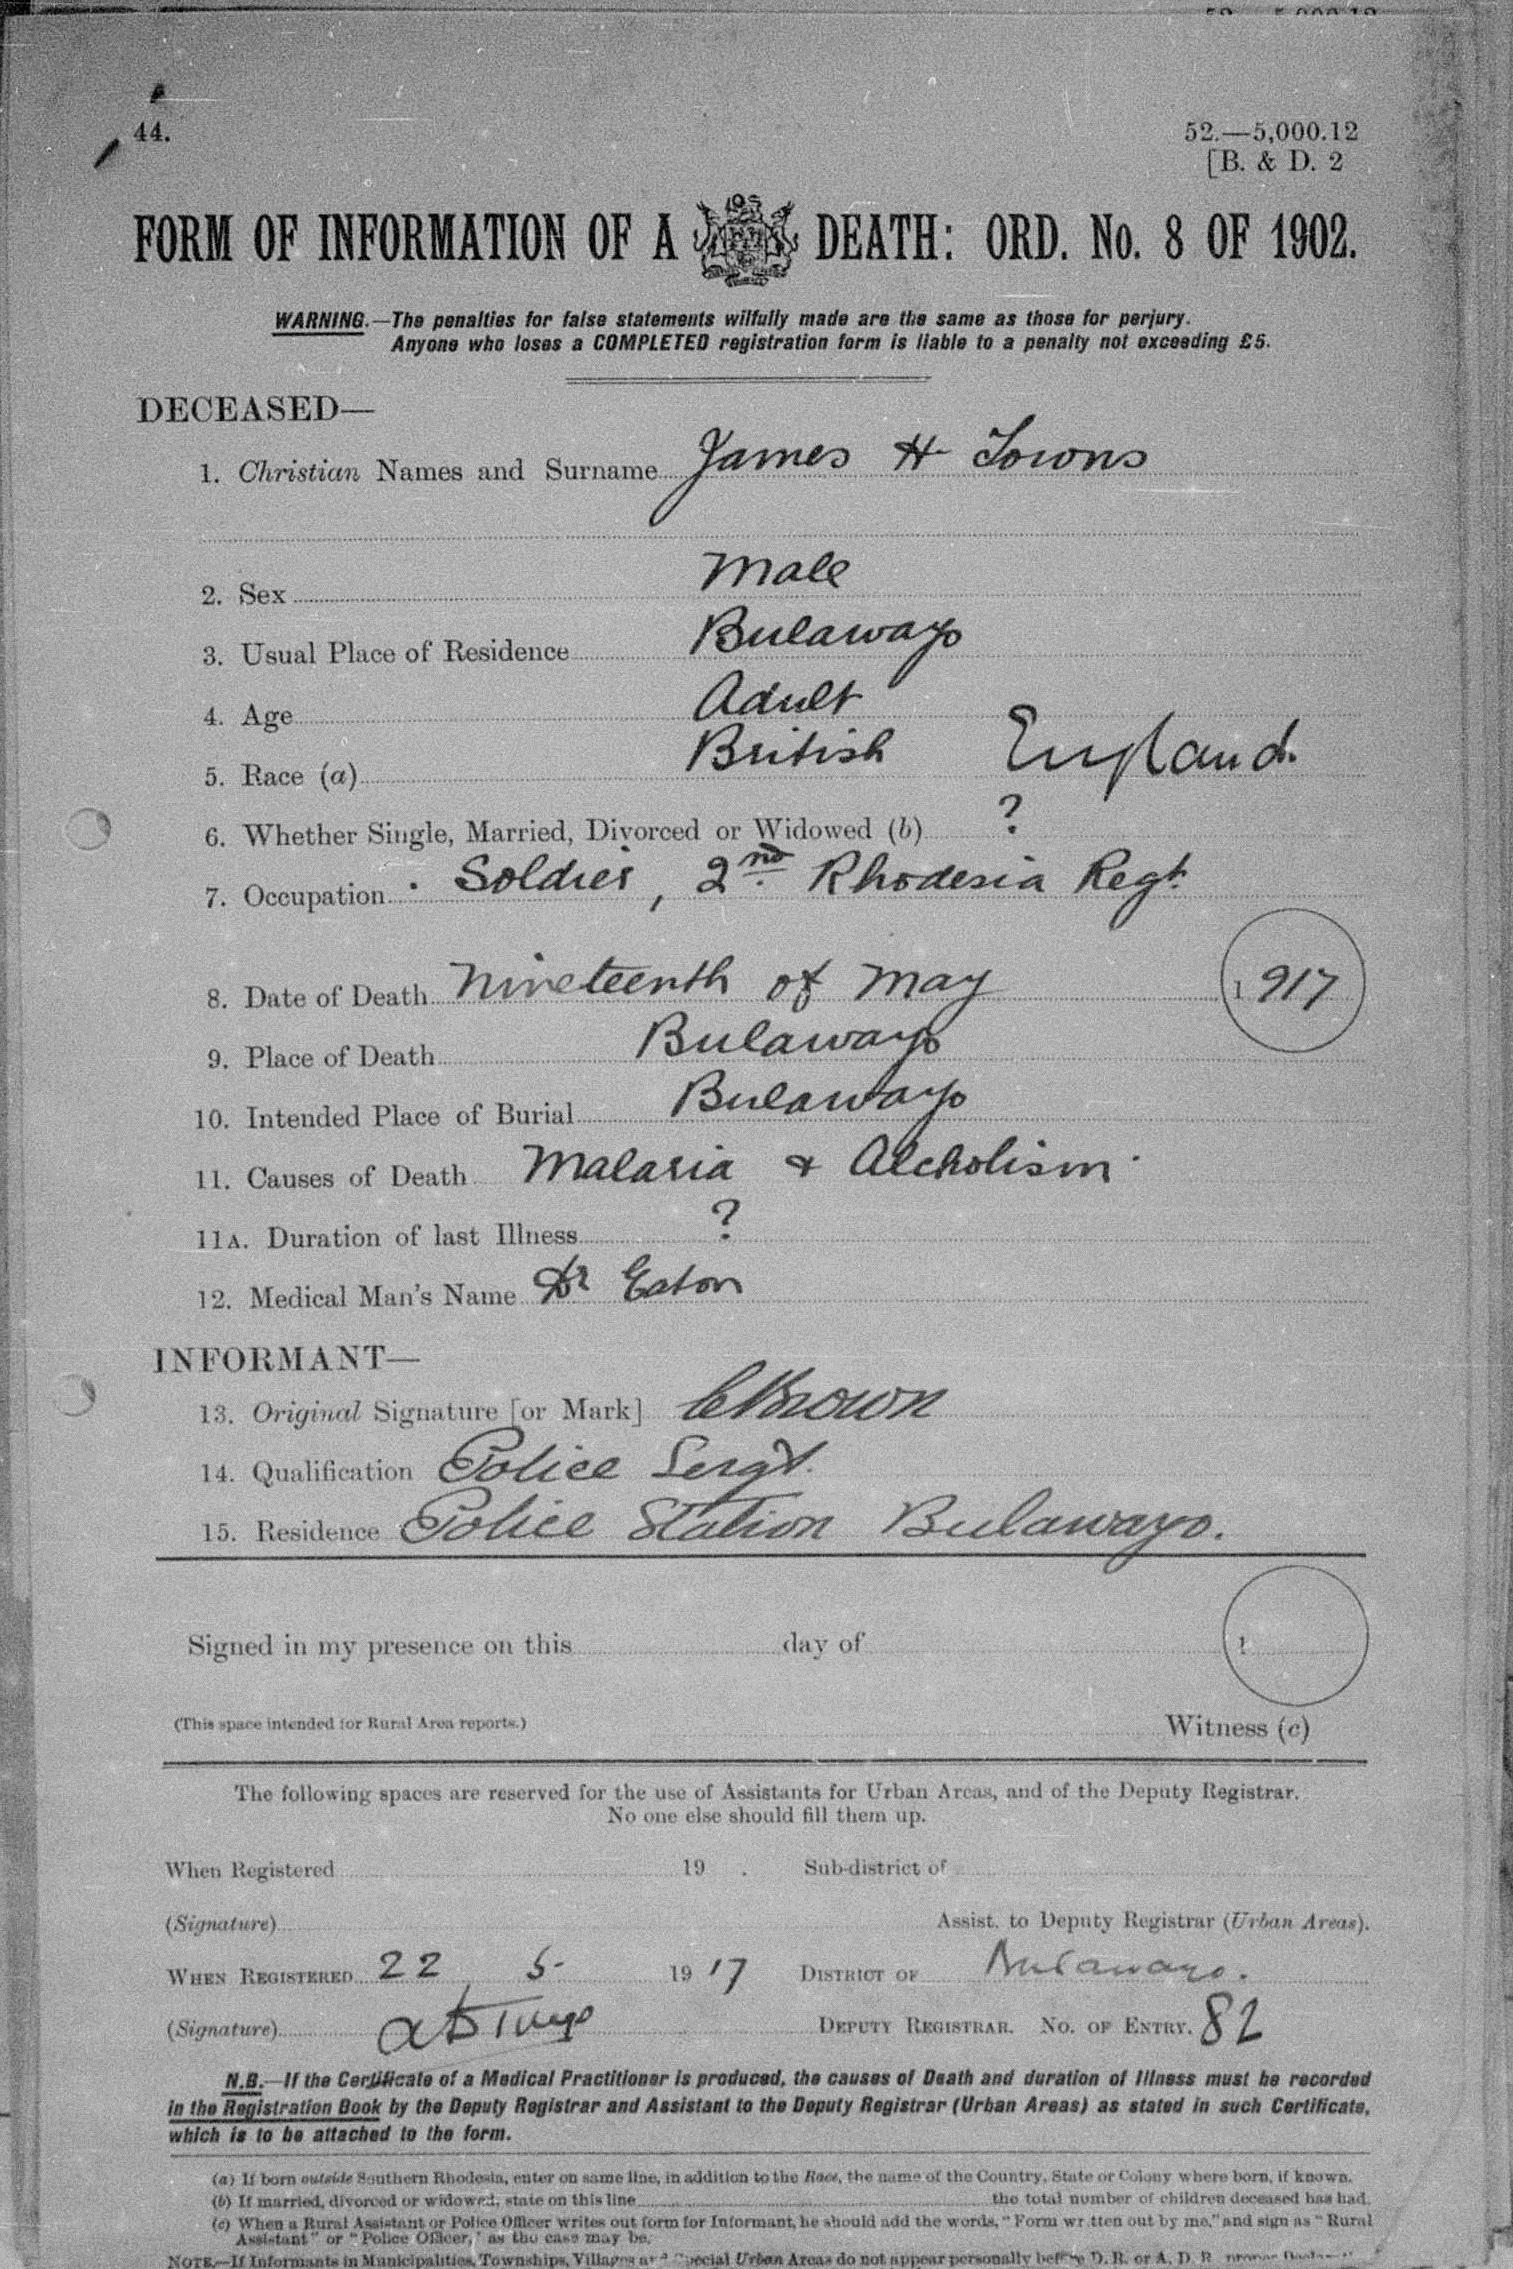 44.
52.—5,000.12
[B. & D. 2
FORM OF INFORMATION OF A DEATH: ORD. No. 8 OF 1902.
WARNING.—The penalties for false statements wilfully made are the same as those for perjury.
Anyone who loses a COMPLETED registration form is liable to a penalty not exceeding £5.
DECEASED—
1. Christian Names and Surname James H Towns
2. Sex Male
3. Usual Place of Residence Bulawayo
4. Age Adult
5. Race (a) British England.
6. Whether Single, Married, Divorced or Widowed (b) ?
7. Occupation Soldier, 2nd Rhodesia Regt.
8. Date of Death Nineteenth of May 1917
9. Place of Death Bulawayo
10. Intended Place of Burial Bulawayo
11. Causes of Death Malaria & Alcholism
11A. Duration of last Illness ?
12. Medical Man's Name Dr Eaton
INFORMANT—
13. Original Signature [or Mark] CBrown
14. Qualification Police Sergt.
15. Residence Police Station Bulawayo.
Signed in my presence on this day of 1
(This space intended for Rural Area reports.) Witness (c)
The following spaces are reserved for the use of Assistants for Urban Areas, and of the Deputy Registrar.
No one else should fill them up.
When Registered 19 . Sub-district of
(Signature) Assist. to Deputy Registrar (Urban Areas).
WHEN REGISTERED 22 5- 1917 DISTRICT OF Bulawayo.
(Signature) DEPUTY REGISTRAR. NO. OF ENTRY. 82
N.B.—If the Certificate of a Medical Practitioner is produced, the causes of Death and duration of Illness must be recorded
in the Registration Book by the Deputy Registrar and Assistant to the Deputy Registrar (Urban Areas) as stated in such Certificate,
which is to be attached to the form.
(a) If born outside Southern Rhodesia, enter on same line, in addition to the Race, the name of the Country, State or Colony where born, if known.
(b) If married, divorced or widowed, state on this line the total number of children deceased has had.
(c) When a Rural Assistant or Police Officer writes out form for Informant, he should add the words, "Form written out by me," and sign as "Rural
Assistant" or "Police Officer," as the case may be.
NOTE.—If Informants in Municipalities, Townships, Villages and Special Urban Areas do not appear personally before D. R. or A. D. R.